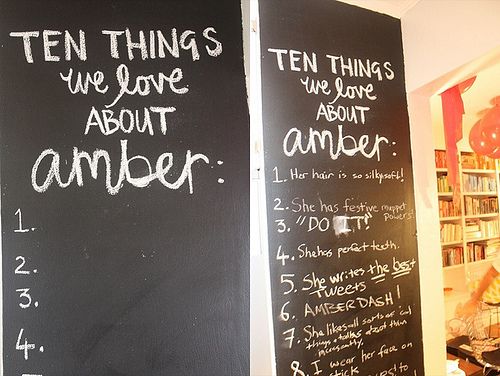 TEN THINGS
we love
ABOUT
amber:
1.
2.
3.
4.
TEN THINGS
we love
ABOUT
amber:
1. Her hair is so silkysoft!
2. She has festive muppet
powers!
3. "DO IT!"
4. She has perfect teeth.
5. She writes the best
TWEETS
6. AMBERDASH!
7. She likes all sorts or
things + talks about them
incessantly.
8. I wear her face on
stick